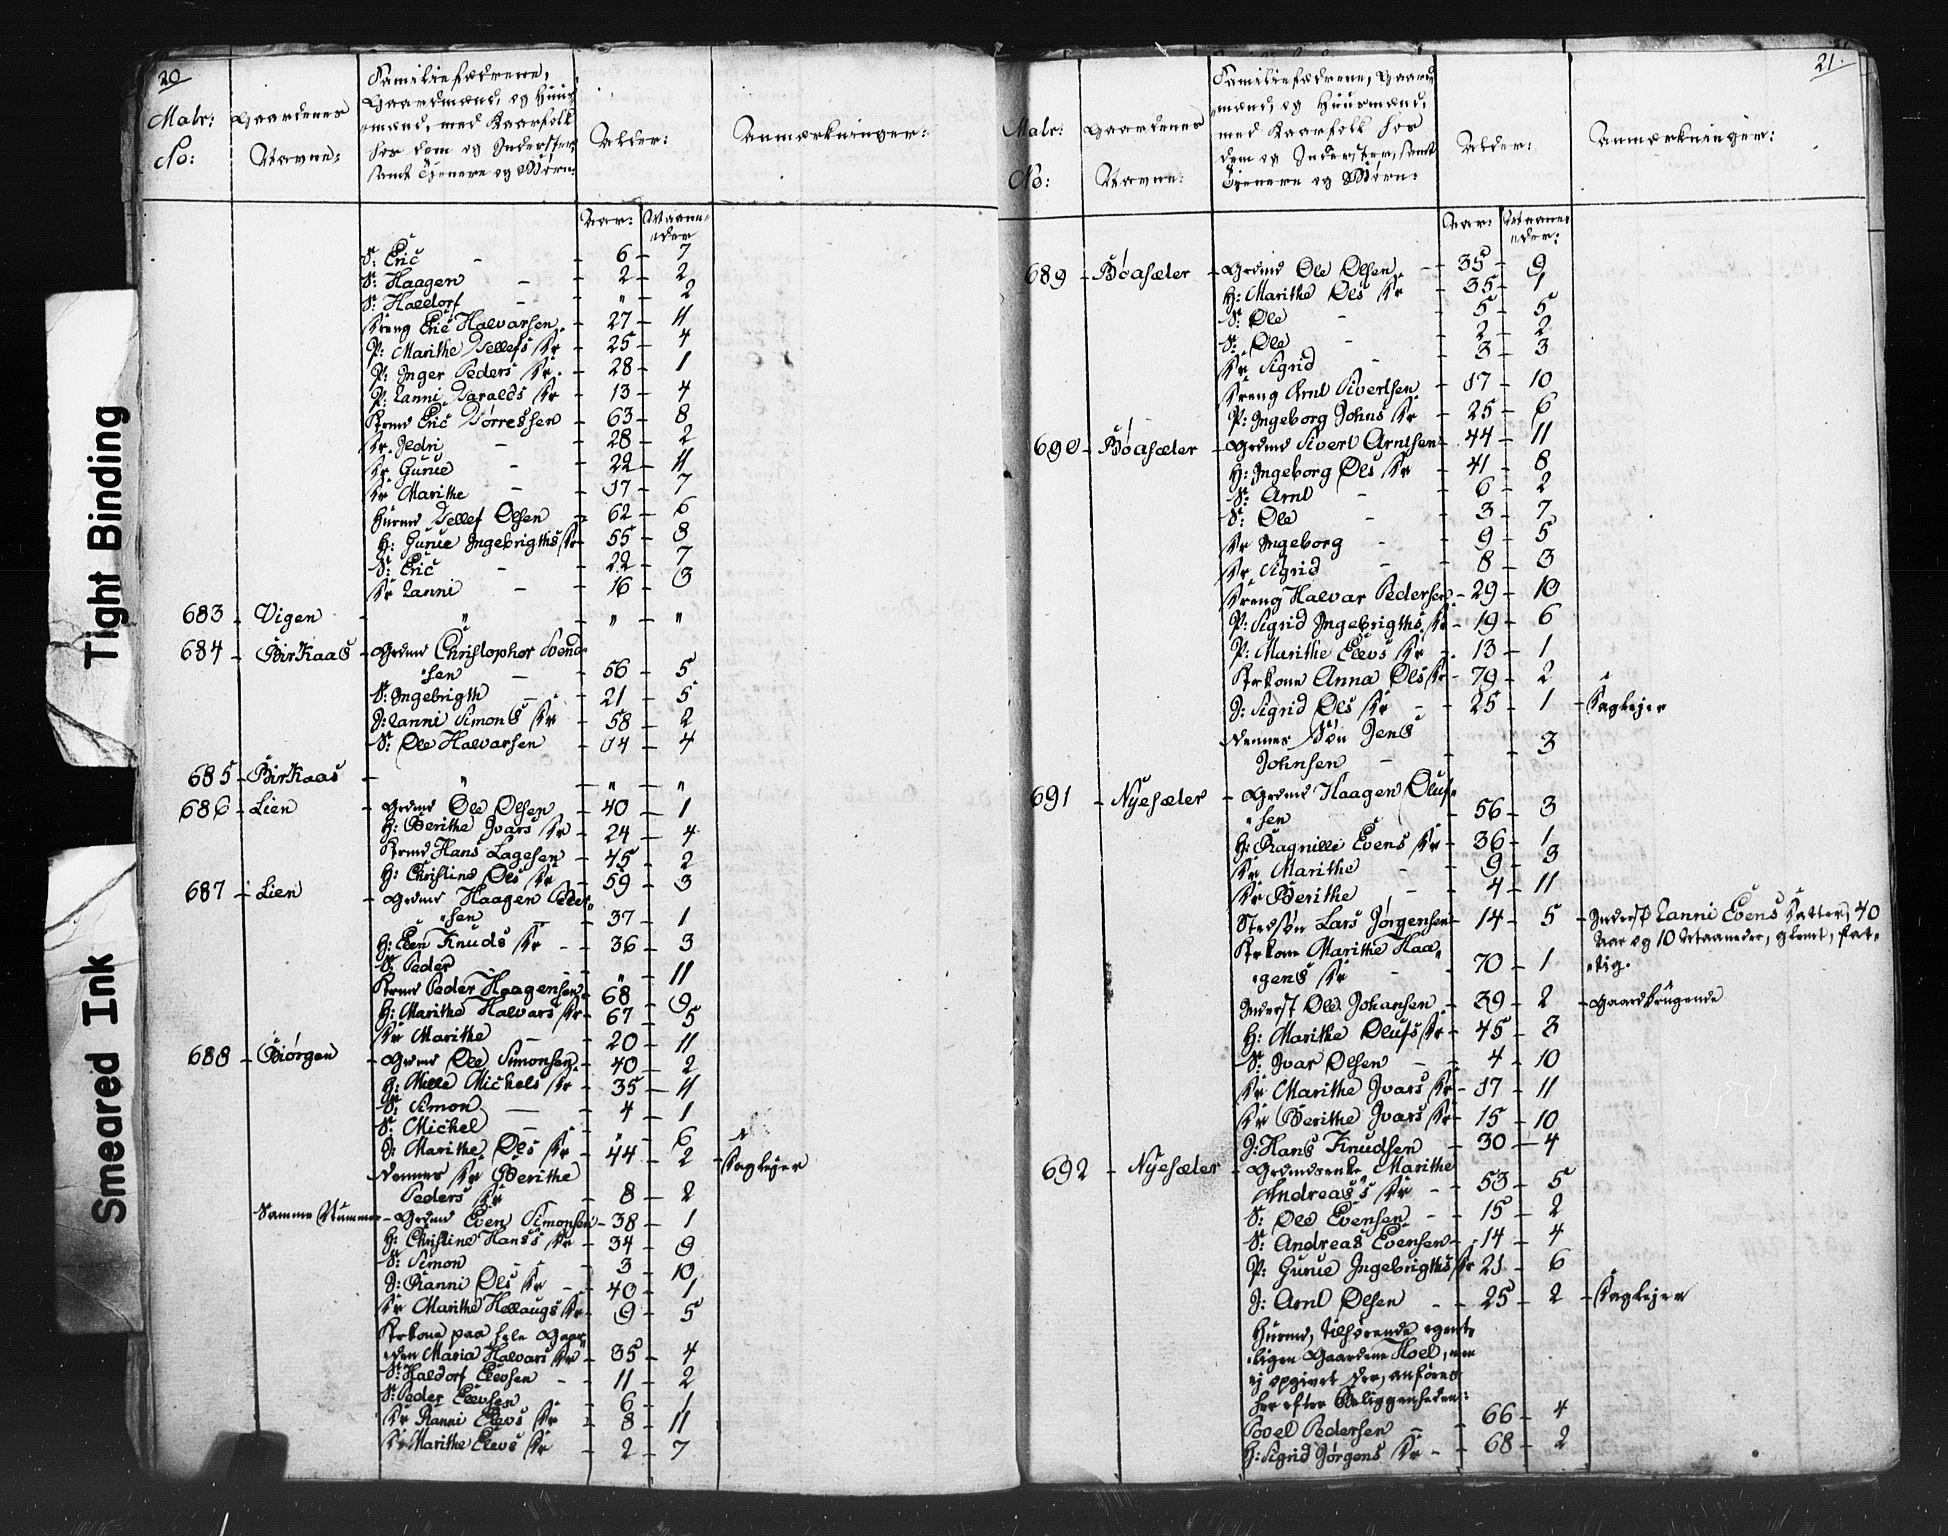 Tight Binding
Smeared Ink
20
Matr: Gaardenes Familiefædrene,
Gaardmænd, og Huus-
mænd, med Kaarfolk
hos dem og Inderster
samt Tjenere og Børn:
No: Navne: Alder: Anmærkninger:
Aar: Maane-
der
S: Eric - 6 - 7
S: Haagen - 2 - 2
S: Haldorf - " - 2
Eric Halvorsen - 27 - 11
P: Marithe Tellefs Dr - 25 - 4
P: Inger Peders Dr - 28 - 1
P: Lanni Haralds Dr - 13 - 4
Eric Tørressen - 63 - 8
Dr Jedri - 28 - 2
Dr Gurue - 22 - 11
Dr Marithe - 17 - 7
Husmd Tellef Olsen - 62 - 6
H: Gurue Ingebrigths Dr - 55 - 8
S: Eric - 22 - 7
Dr Lanni - 16 - 3
683 - Vigen - " - " - "
684 - Birkaas - Grdmd Christophor Svend-
sen - 56 - 5
S: Ingebrigth - 21 - 5
J: Lanni Simons Dr - 58 - 2
S: Ole Halvorsen - 14 - 4
685 - Birkaas - " - " - "
686 - Lien - Grdmd Ole Olsen - 40 - 1
H: Berithe Ivars Dr - 24 - 4
Hans Lagesen - 45 - 2
H: Christine Ols Dr - 59 - 3
687 - Lien - Grdmd Haagen Peder-
sen - 37 - 1
H: Elen Knuds Dr - 36 - 3
S: Peder - " - 11
Peder Haagensen - 68 - 9
H: Marithe Halvors Dr - 67 - 5
Dr Marithe - 20 - 11
688 - Biørgen - Grdmd Ole Simonsen - 40 - 2
H: Mille Michels Dr - 35 - 11
S: Simon - 4 - 1
S: Michel - " - 6
J: Marithe Ols Dr - 44 - 2
Dennes Dr Berithe
Peders Dr - 8 - 2
Samme Nummer - Grdmd Even Simonsen - 38 - 1
H: Christine Hans's Dr - 34 - 9
S: Simon - 3 - 10
J: Ranni Ols Dr - 40 - 1
Dr Marithe Hellaugs Dr - 9 - 5
paa hele Gaar-
den Maria Halvors Dr - 35 - 4
S: Haldorf Elevsen - 11 - 2
S: Peder Elevsen - 6 - 1
Dr Ranni Elevs Dr - 8 - 11
Dr Marithe Elevs Dr - 2 - 7
21.
Matr: Gaardenes Familiefædrene, Gaard-
mænd, og Huusmænd,
med Kaarfolk hos
dem og Inderster, samt
Tjenere og Børn:
No: Navne: Alder: Anmærkninger:
Aar: Maane-
der:
689 - Bøasæter - Grdmd Ole Olsen - 35 - 9
H: Marithe Ols Dr - 35 - 1
S: Ole - 5 - 5
S: Ole - 2 - 2
Dr Sigrid - 3 - 3
Arnt Sivertsen - 17 - 10
P: Ingeborg Johns Dr - 25 - 6
690 - Bøasæter - Grdmd Sivert Arntsen - 44 - 11
H: Ingeborg Ols Dr - 41 - 8
S: Arnt - 6 - 2
S: Ole - 3 - 7
Dr Ingeborg - 9 - 5
Dr Sigrid - 8 - 3
Halvor Pedersen - 29 - 10
P: Sigrid Ingebrigths Dr - 19 - 6
P: Marithe Elevs Dr - 13 - 1
Anna Ols Dr - 79 - 2
J: Sigrid Ols Dr - 25 - 1
Dennes Søn Jens
Johnsen - - 3
691 - Nyesæter - Grdmd Haagen Oluf-
sen - 56 - 3
H: Ragnille Evens Dr - 36 - 1
Dr Marithe - 9 - 3
Dr Berithe - 4 - 11
Stedsøn Lars Jørgensen - 14 - 5 - Inderst Lanni Evens Datter, 40
Aar og 10 Maaneder, glemt, fat-
tig.
Marithe Haa-
gens Dr - 70 - 1
Inderst Ole Johansen - 39 - 2 - Gaardbrugende
H: Marithe Olufs Dr - 45 - 3
S: Ivar Olsen - 4 - 10
Dr Marithe Ivars Dr - 17 - 11
Dr Berithe Ivars Dr - 15 - 10
J: Hans Knudsen - 30 - 4
692 - Nyesæter - Grdmdsenke Marithe
Andreas's Dr - 53 - 5
S: Ole Evensen - 15 - 2
S: Andreas Evensen - 14 - 4
P: Gurue Ingebrigths Dr - 21 - 6
J: Arnt Olsen - 25 - 2
Husmd, tilhørende egent-
ligen Gaardene Hoel, men
ej opgivet der, anføres
her efter Beliggenheden:
Povel Pedersen - 66 - 4
H: Sigrid Jørgens Dr - 68 - 2